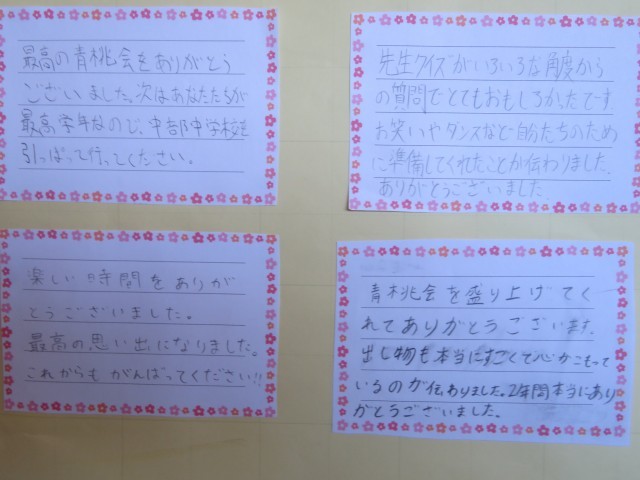 最高の青桃会をありがとう
ございました。次はあなたたちが
最高学年なので、中部中学校を
引っぱって行ってください。
先生クイズがいろいろな角度から
の質問でとてもおもしろかったです。
お笑いやダンスなど自分たちのため
に準備してくれたことが伝わりました。
ありがとうございました。
楽しい時間をありが
とうございました。
最高の思い出になりました。
これからもがんばってください!!
青桃会を盛り上げてく
れてありがとうございます。
出し物も本当にすごくて心がこもって
いるのが伝わりました。2年間本当にあり
がとうございました。